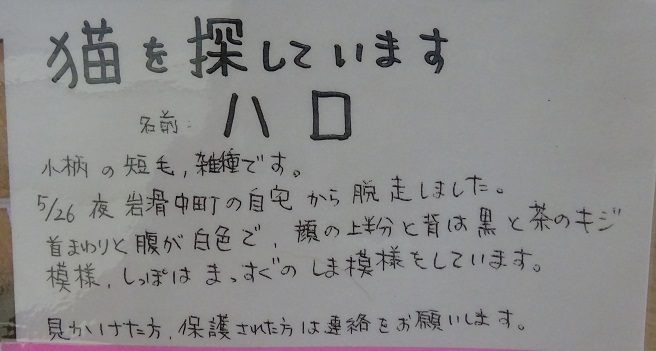 猫を探しています
名前: ハロ
小柄の短毛,雑種です。
5/26 夜 岩滑中町の自宅から脱走しました。
首まわりと腹が白色で、顔の上半分と背は黒と茶のキジ
模様,しっぽはまっすぐのしま模様をしています。
見かけた方,保護された方は連絡をお願いします。